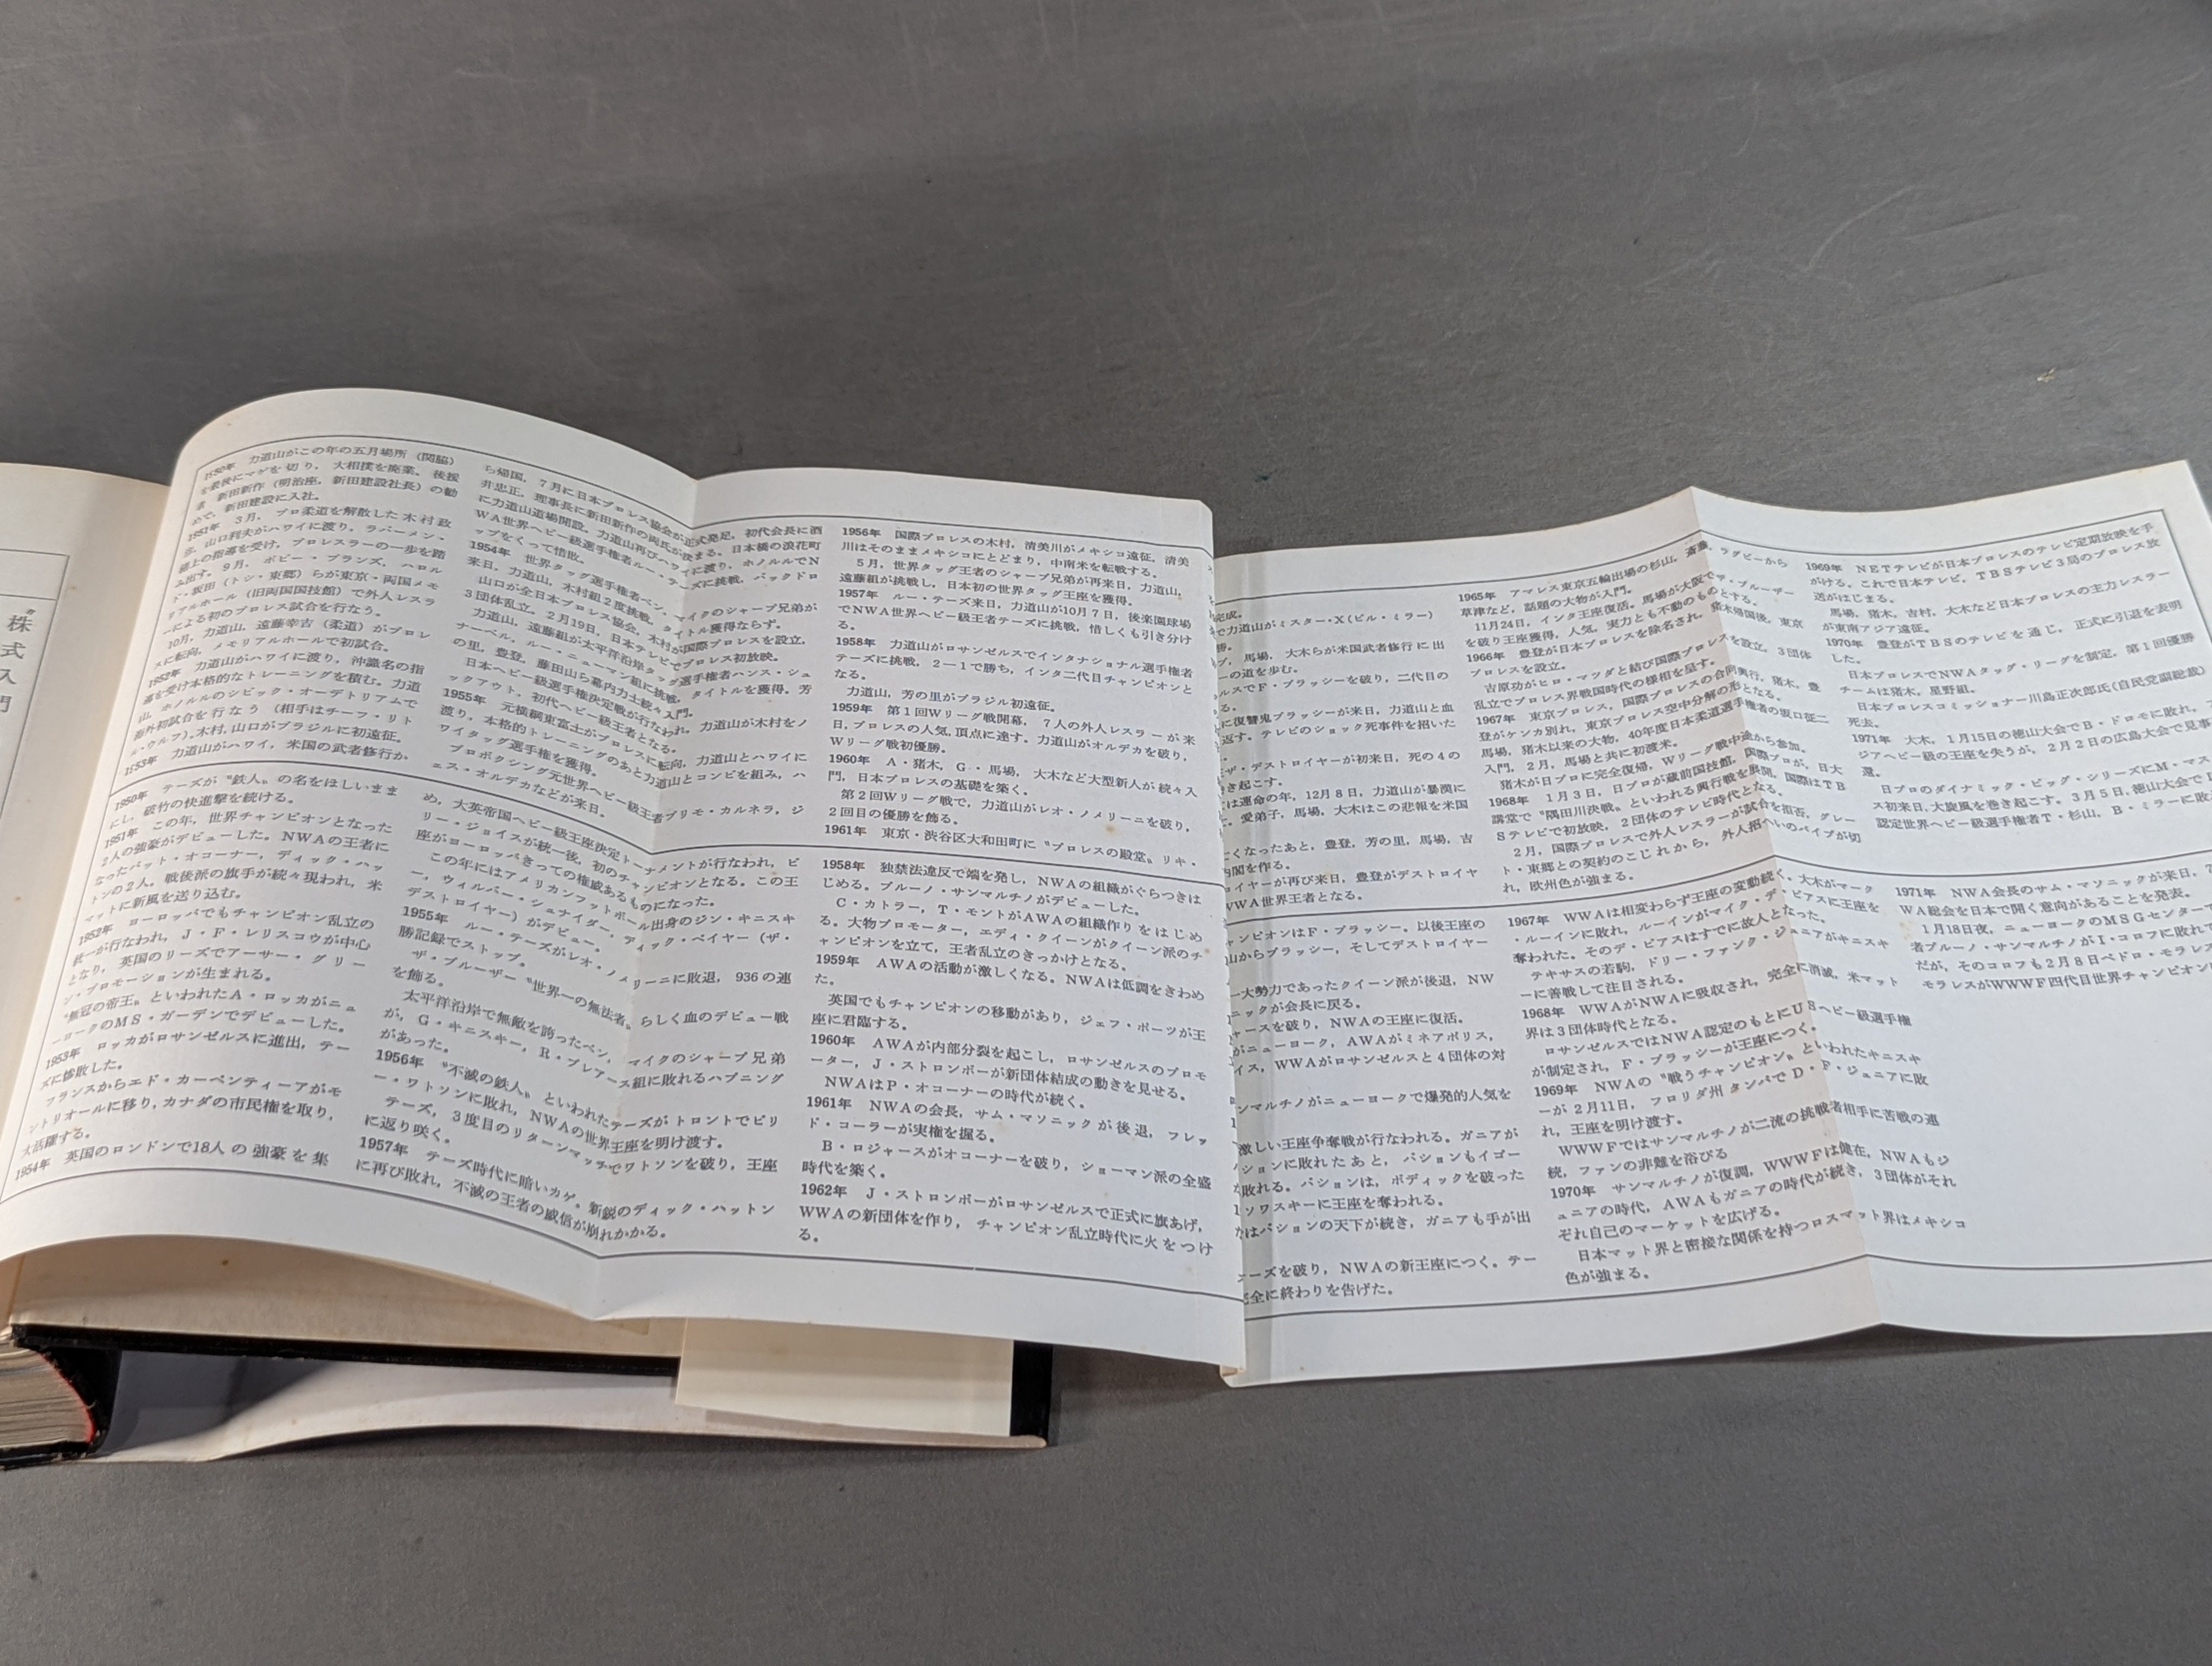 株式入門
1950年　力道山がこの年の五月場所（関脇）
を最後にマゲを切り，大相撲を廃業。後援
者　新田新作（明治座，新田建設社長）の勧
めで，新田建設に入社。
1951年　3月，プロ柔道を解散した木村政
彦，山口利夫がハワイに渡り，ラバーメン・
樋上の指導を受け，プロレスラーの一歩を踏
み出す。9月，ボビー・ブランズ，ハロル
ド・坂田（トシ・東郷）らが東京・両国メモ
リアルホール（旧両国国技館）で外人レスラ
ーによる初のプロレス試合を行なう。
10月，力道山，遠藤幸吉（柔道）がプロレ
スに転向，メモリアルホールで初試合。
1952年　力道山がハワイに渡り，沖識名の指
導を受け本格的なトレーニングを積む。力道
山，ホノルルのシビック・オーデトリアムで
海外初試合を行なう（相手はチーフ・リト
ル・ウルフ）。木村，山口がブラジルに初遠征。
1953年　力道山がハワイ，米国の武者修行か
ら帰国，7月に日本プロレス協会が正式発足，初代会長に酒
井忠正，理事長に新田新作の両氏が決まる。日本橋の浪花町
に力道山道場開設。力道山再び，ハワイに渡り，ホノルルでN
WA世界ヘビー級選手権者ルー・テーズに挑戦，バックドロ
ップをくって惜敗。
1954年　世界タッグ選手権者ベン，マイクのシャープ兄弟が
来日，力道山，木村組2度挑戦，タイトル獲得ならず。
山口が全日本プロレス協会，木村が国際プロレスを設立，
3団体乱立。2月19日，日本テレビでプロレス初放映。
力道山，遠藤組が太平洋沿岸タッグ選手権者ハンス・シュ
ナーベル，ルー・ニューマン組に挑戦，タイトルを獲得。芳
の里，豊登，藤田山ら幕内力士続々入門。
日本ヘビー級選手権決定戦が行なわれ，力道山が木村をノ
ックアウト，初代ヘビー級王者となる。
1955年　元横綱東富士がプロレスに転向，力道山とハワイに
渡り，本格的トレーニングのあと力道山とコンビを組み，ハ
ワイタッグ選手権を獲得。
プロボクシング元世界ヘビー級王者プリモ・カルネラ，ジ
ェス・オルデカなどが来日。
1956年　国際プロレスの木村，清美川がメキシコ遠征，清美
川はそのままメキシコにとどまり，中南米を転戦する。
5月，世界タッグ王者のシャープ兄弟が再来日，力道山，
遠藤組が挑戦し，日本初の世界タッグ王座を獲得。
1957年　ルー・テーズ来日，力道山が10月7日，後楽園球場
でNWA世界ヘビー級王者テーズに挑戦，惜しくも引き分け
る。
1958年　力道山がロサンゼルスでインタナショナル選手権者
テーズに挑戦，2—1で勝ち，インタ二代目チャンピオンと
なる。
力道山，芳の里がブラジル初遠征。
1959年　第1回Wリーグ戦開幕，7人の外人レスラーが来
日，プロレスの人気，頂点に達す。力道山がオルデカを破り，
Wリーグ戦初優勝。
1960年　A・猪木，G・馬場，大木など大型新人が続々入
門，日本プロレスの基礎を築く。
第2回Wリーグ戦で，力道山がレオ・ノメリーニを破り，
2回目の優勝を飾る。
1961年　東京・渋谷区大和田町に〝プロレスの殿堂〟リキ・
完成。
で力道山がミスター・X（ビル・ミラー）
勝。
プ，馬場，大木らが米国武者修行に出
ーの道を歩む。
ルスでF・ブラッシーを破り，二代目の
る。
に復讐鬼ブラッシーが来日，力道山と血
返す。テレビのショック死事件を招いた
ザ・デストロイヤーが初来日，死の4の
き起こす。
は運命の年，12月8日，力道山が暴漢に
，愛弟子，馬場，大木はこの悲報を米国
くなったあと，豊登，芳の里，馬場，吉
内閣を作る。
ロイヤーが再び来日，豊登がデストロイヤ
WWA世界王者となる。
1965年　アマレス東京五輪出場の杉山，斎藤，ラグビーから
草津など，話題の大物が入門。
11月24日，インタ王座復活。馬場が大阪でザ・ブルーザー
を破り王座獲得，人気，実力とも不動のものとする。
1966年　豊登が日本プロレスを除名され，猪木帰国後，東京
プロレスを設立。
吉原功がヒロ・マツダと結び国際プロレスを設立，3団体
乱立でプロレス界戦国時代の様相を呈す。
1967年　東京プロレス，国際プロレスの合同興行，猪木，豊
登がケンカ別れ，東京プロレス空中分解の形となる。
馬場，猪木以来の大物，40年度日本柔道選手権者の坂口征二
入門，2月，馬場と共に初渡米。
猪木が日プロに完全復帰，Wリーグ戦中途から参加。
1968年　1月3日，日プロが蔵前国技館，国際プロが，日大
講堂で〝隅田川決戦〟といわれる興行戦を展開，国際はTB
Sテレビで初放映，2団体のテレビ時代となる。
2月，国際プロレスで外人レスラーが試合を拒否，グレー
ト・東郷との契約のこじれから，外人招へいのパイプが切
れ，欧州色が強まる。
1969年　NETテレビが日本プロレスのテレビ定期放映を手
がける。これで日本テレビ，TBSテレビ3局のプロレス放
送がはじまる。
馬場，猪木，吉村，大木など日本プロレスの主力レスラー
が東南アジア遠征。
1970年　豊登がTBSのテレビを通じ，正式に引退を表明
した。
日本プロレスでNWAタッグ・リーグを制定，第1回優勝
チームは猪木，星野組。
日本プロレスコミッショナー川島正次郎氏（自民党副総裁）
死去。
1971年　大木，1月15日の徳山大会でB・ドロモに敗れ，ア
ジアヘビー級の王座を失うが，2月2日の広島大会で見事
還。
日プロのダイナミック・ビッグ・シリーズにM・マス
ス初来日，大旋風を巻き起こす。3月5日，徳山大会で
認定世界ヘビー級選手権者T・杉山，B・ミラーに敗
1950年　テーズが〝鉄人〟の名をほしいまま
にし，破竹の快進撃を続ける。
1951年　この年，世界チャンピオンとなった
2人の強豪がデビューした。NWAの王者に
なったパット・オコーナー，ディック・ハッ
トンの2人。戦後派の旗手が続々現われ，米
マットに新風を送り込む。
1952年　ヨーロッパでもチャンピオン乱立の
統一が行なわれ，J・F・レリスコウが中心
となり，英国のリーズでアーサー・グリー
ン・プロモーションが生まれる。
〝無冠の帝王〟といわれたA・ロッカがニュ
ーヨークのMS・ガーデンでデビューした。
1953年　ロッカがロサンゼルスに進出，テー
ズに惨敗した。
フランスからエド・カーペンティーアがモ
ントリオールに移り，カナダの市民権を取り，
大活躍する。
1954年　英国のロンドンで18人の強豪を集
め，大英帝国ヘビー級王座決定トーナメントが行なわれ，ビ
リー・ジョイスが統一後，初のチャンピオンとなる。この王
座がヨーロッパきっての権威あるものになった。
この年にはアメリカンフットボール出身のジン・キニスキ
ー，ウィルバー・シュナイダー，ディック・ベイヤー（ザ・
デストロイヤー）がデビュー。
1955年　ルー・テーズがレオ・ノメリーニに敗退，936の連
勝記録でストップ。
ザ・ブルーザー〝世界一の無法者〟らしく血のデビュー戦
を飾る。
太平洋沿岸で無敵を誇ったベン，マイクのシャープ兄弟
が，G・キニスキー，R・ブレアース組に敗れるハプニング
があった。
1956年　〝不滅の鉄人〟といわれたテーズがトロントでビリ
ー・ワトソンに敗れ，NWAの世界王座を明け渡す。
テーズ，3度目のリターンマッチでワトソンを破り，王座
に返り咲く。
1957年　テーズ時代に暗いカゲ。新鋭のディック・ハットン
に再び敗れ，不滅の王者の威信が崩れかかる。
1958年　独禁法違反で端を発し，NWAの組織がぐらつきは
じめる。ブルーノ・サンマルチノがデビューした。
C・カトラー，T・モントがAWAの組織作りをはじめ
る。大物プロモーター，エディ・クイーンがクイーン派のチ
ャンピオンを立て，王者乱立のきっかけとなる。
1959年　AWAの活動が激しくなる。NWAは低調をきわめ
た。
英国でもチャンピオンの移動があり，ジェフ・ポーツが王
座に君臨する。
1960年　AWAが内部分裂を起こし，ロサンゼルスのプロモ
ーター，J・ストロンボーが新団体結成の動きを見せる。
NWAはP・オコーナーの時代が続く。
1961年　NWAの会長，サム・マソニックが後退，フレッ
ド・コーラーが実権を握る。
B・ロジャースがオコーナーを破り，ショーマン派の全盛
時代を築く。
1962年　J・ストロンボーがロサンゼルスで正式に旗あげ，
WWAの新団体を作り，チャンピオン乱立時代に火をつけ
る。
ャンピオンはF・ブラッシー。以後王座の
山からブラッシー，そしてデストロイヤー
一大勢力であったクイーン派が後退，NW
ニックが会長に戻る。
ャースを破り，NWAの王座に復活。
がニューヨーク，AWAがミネアポリス，
イス，WWAがロサンゼルスと4団体の対
ンマルチノがニューヨークで爆発的人気を
激しい王座争奪戦が行なわれる。ガニアが
ションに敗れたあと，バションもイゴー
敗れる。バションは，ボディックを破った
ソワスキーに王座を奪われる。
はバションの天下が続き，ガニアも手が出
ーズを破り，NWAの新王座につく。テー
完全に終わりを告げた。
1967年　WWAは相変わらず王座の変動続く，大木がマーク
・ルーインに敗れ，ルーインがマイク・デ・ビアスに王座を
奪われた。そのデ・ビアスはすでに故人となった。
テキサスの若駒，ドリー・ファンク・ジュニアがキニスキ
ーに善戦して注目される。
1968年　WWAがNWAに吸収され，完全に消滅，米マット
界は3団体時代となる。
ロサンゼルスではNWA認定のもとにUSヘビー級選手権
が制定され，F・ブラッシーが王座につく。
1969年　NWAの〝戦うチャンピオン〟といわれたキニスキ
ーが2月11日，フロリダ州タンパでD・F・ジュニアに敗
れ，王座を明け渡す。
WWWFではサンマルチノが二流の挑戦者相手に苦戦の連
続，ファンの非難を浴びる
1970年　サンマルチノが復調，WWWFは健在，NWAもジ
ュニアの時代，AWAもガニアの時代が続き，3団体がそれ
ぞれ自己のマーケットを広げる。
日本マット界と密接な関係を持つロスマット界はメキシコ
色が強まる。
1971年　NWA会長のサム・マソニックが来日，
WA総会を日本で開く意向があることを発表。
1月18日夜，ニューヨークのMSGセンターで
者ブルーノ・サンマルチノがI・コロフに敗れて
だが，そのコロフも2月8日ペドロ・モラレス
モラレスがWWWF四代目世界チャンピオン